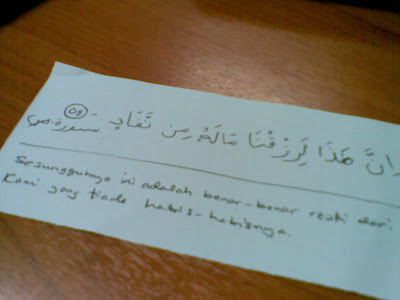 اِنَّ هَذَا لَرِزْقُنَا مَالَهُ مِن نَّفَادٍ ٥٤ سورة ص
Sesungguhnya ini adalah benar-benar rezki dari
Kami yang tiada habis-habisnya.